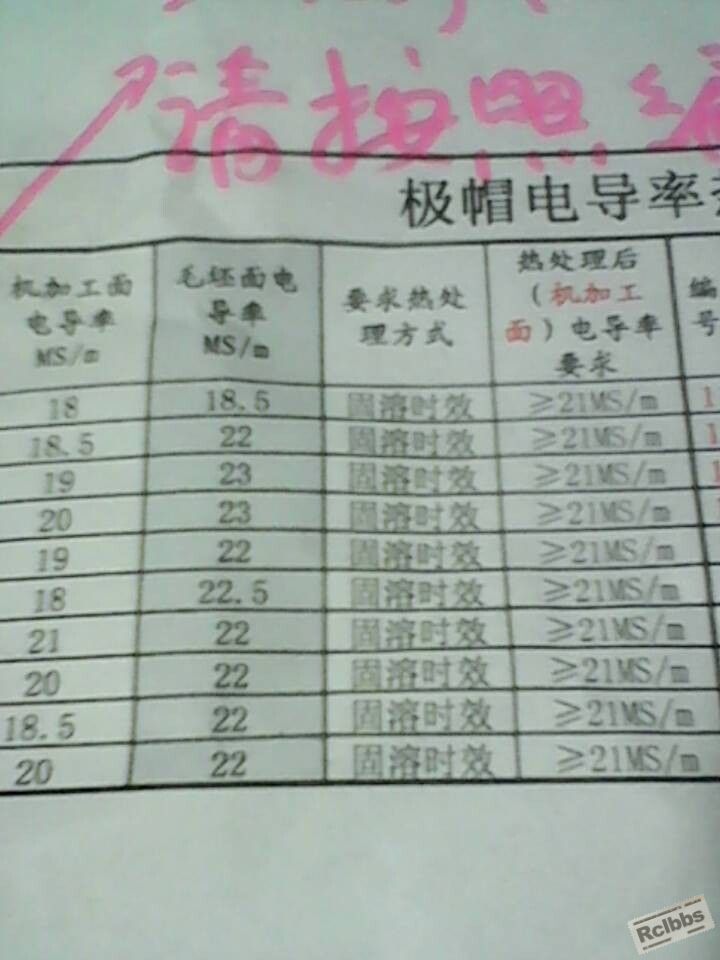 请按照编
极帽电导率
机加工面电导率 MS/m 毛坯面电导率 MS/m 要求热处理方式 热处理后（机加工面）电导率要求 编号
18 18.5 固溶时效 ≥21MS/m 1
18.5 22 固溶时效 ≥21MS/m 1
19 23 固溶时效 ≥21MS/m 1
20 23 固溶时效 ≥21MS/m
19 22 固溶时效 ≥21MS/m
18 22.5 固溶时效 ≥21MS/m
21 22 固溶时效 ≥21MS/m
20 22 固溶时效 ≥21MS/m
18.5 22 固溶时效 ≥21MS/m
20 22 固溶时效 ≥21MS/m
Rclbbs